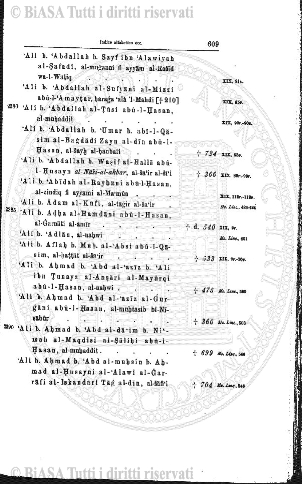 © BiASA Tutti i diritti riservati
Indice alfabetico ecc.
609
'Alī b. 'Abdallah b. Sayf ibn 'Alawiyah
al-Ṣafadī, al-muġannī fī ayyām al-Rašīd
wa-l-Wāṯiq
XIX, 81a.
'Alī b. 'Abdallah al-Sufyānī al-Mizzī
abū-l-'Amayṭar, ḫaraǧa 'alà 'l-Mahdī [† 210]
XIX, 83v.
'Alī b. 'Abdallah al-Ṭūsī abū-l-Ḥasan,
al-muḥaddiṯ
XIX, 90r.-90v.
'Alī b. 'Abdallah b. 'Umar b. abī-l-Qā-
sim al-Baġdādī Zayn al-dīn abū-l-
Ḥasan, al-šayḫ al-ḥanbalī
† 734
XIX, 85r.
'Alī b. 'Abdallah b. Waṣīf al-Ḥallā abū-
l-Ḥusayn al-Nāšī al-akbar, al-šā'ir al-šī'ī
† 366
XIX, 88r.-90r.
'Alī b. 'Abīdah al-Rayḥānī abū-l-Ḥasan,
al-zindīq fī ayyāmi al-Ma'mūn
XIX, 118r.-119r.
'Alī b. Ādam al-Kūfī, al-tāǧir al-šā'ir
'Alī b. Adḥā al-Hamdānī abū-l-Ḥasan,
al-Ġarnāṭī al-amīr
d. 540
XIX, 9r.
'Alī b. 'Adlān, al-naḥwī
Ms. Linc., 601
'Alī b. Aflaḥ b. Muḥ. al-'Absī abū-l-Qā-
sim, al-ḫaṭṭāṭ al-šā'ir
† 533
XIX, 9r.-10v.
'Alī b. Aḥmad b. 'Abd al-'azīz b. 'Alī
ibn Ṭunayz al-Anṣārī al-Mayūrqī
abū-l-Ḥasan, al-naḥwī
† 475
Ms. Linc., 566
'Alī b. Aḥmad b. 'Abd al-'azīz al-Ǧur-
ǧānī abū-l-Ḥasan, al-muḥtasib bi-Nī-
sābūr
† 366
Ms. Linc., 565
'Alī b. Aḥmad b. 'Abd al-dā'im b. Ni'-
mah al-Maqdisī al-Ṣāliḥī abū-l-
Ḥasan, al-muḥaddiṯ
† 699
Ms. Linc., 568
'Alī b. Aḥmad b. 'Abd al-muḥsin b. Aḥ-
mad al-Ḥusaynī al-'Alawī al-Ġar-
rāfī al-Iskandarī Tāǧ al-dīn, al-šāfi'ī
† 704
Ms. Linc., 566
© BiASA Tutti i diritti riservati